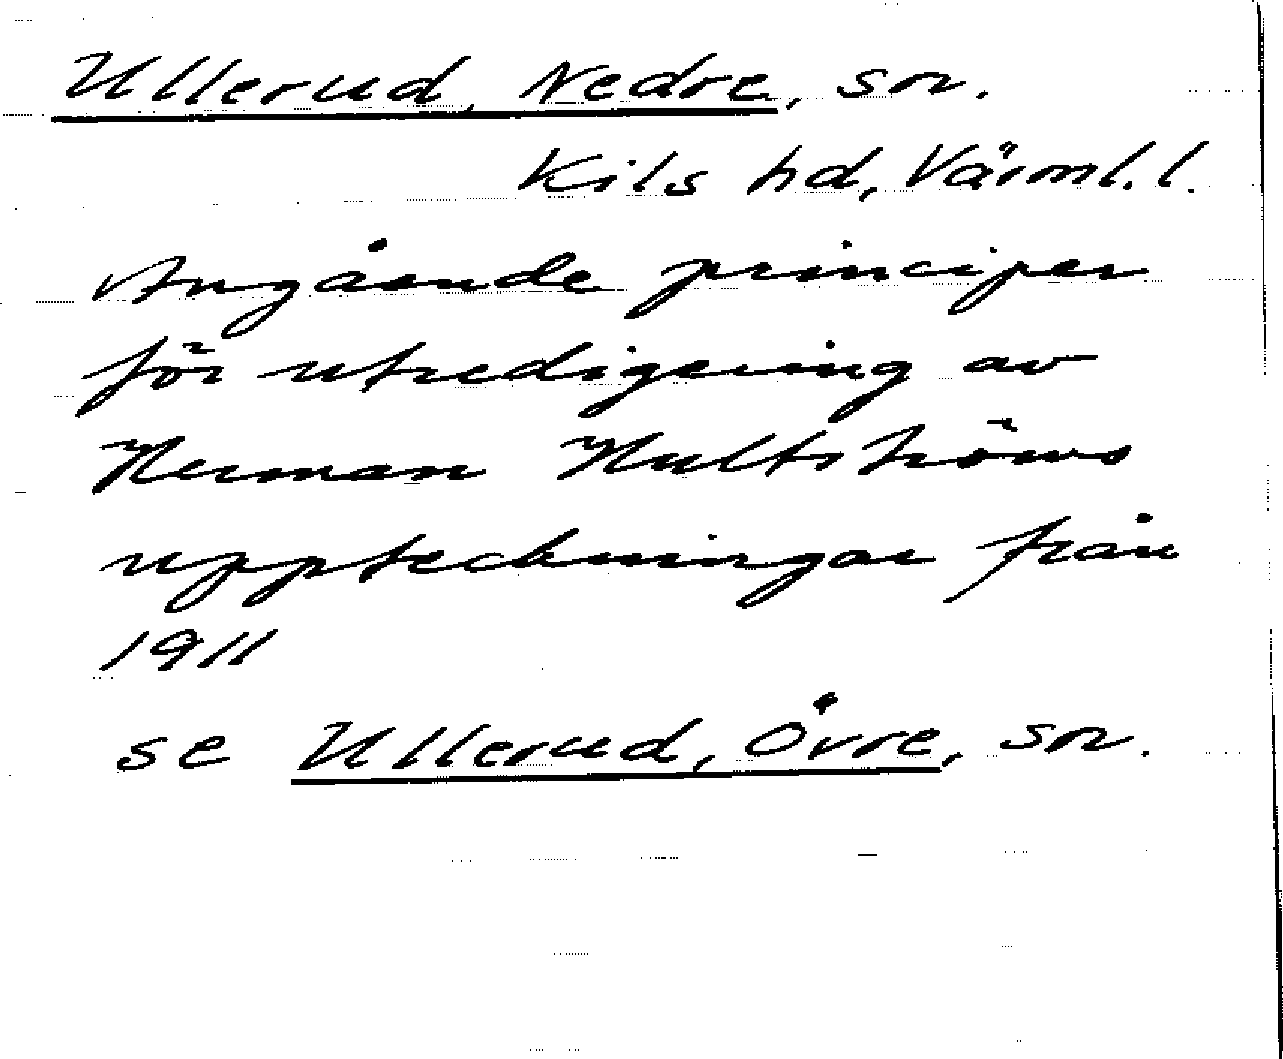 Ullerud, Nedre, sn.
Kils hd, Värml. l.
Angående principer
för utredigering av
Herman Hultströms
uppteckningar från
1911
se Ullerud, Övre, sn.